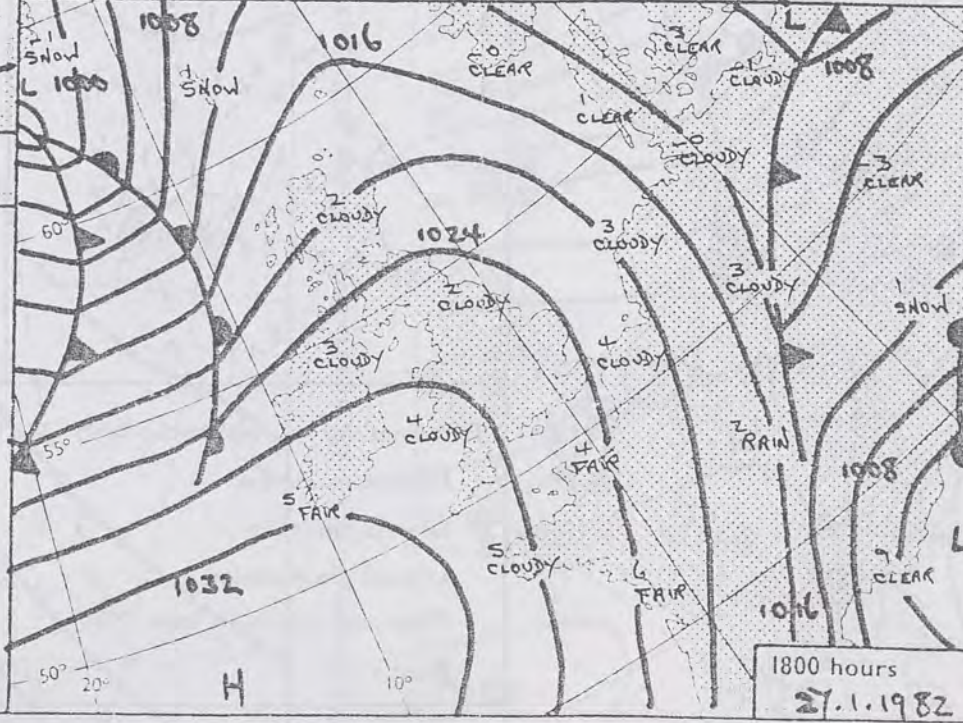 -1
SNOW
L
1000
1008
1
SNOW
1016
0
CLEAR
-3
CLEAR
L
-1
CLOUDY
1008
1
CLEAR
-0
CLOUDY
-3
CLEAR
60°
2
CLOUDY
1024
3
CLOUDY
2
CLOUDY
3
CLOUDY
1
SNOW
3
CLOUDY
4
CLOUDY
55°
4
CLOUDY
4
FAIR
2
RAIN
1008
5
FAIR
5
CLOUDY
6
FAIR
9
CLEAR
L
1032
1016
50°
20°
H
10°
1800 hours
27.1.1982